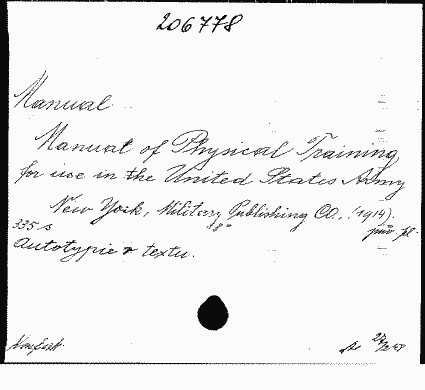 206778
Manual
Manual of Physical Training,
for use in the United States Army
New York, Military Publishing Co, (1914).
335 s 8°
Autotypie v textu.